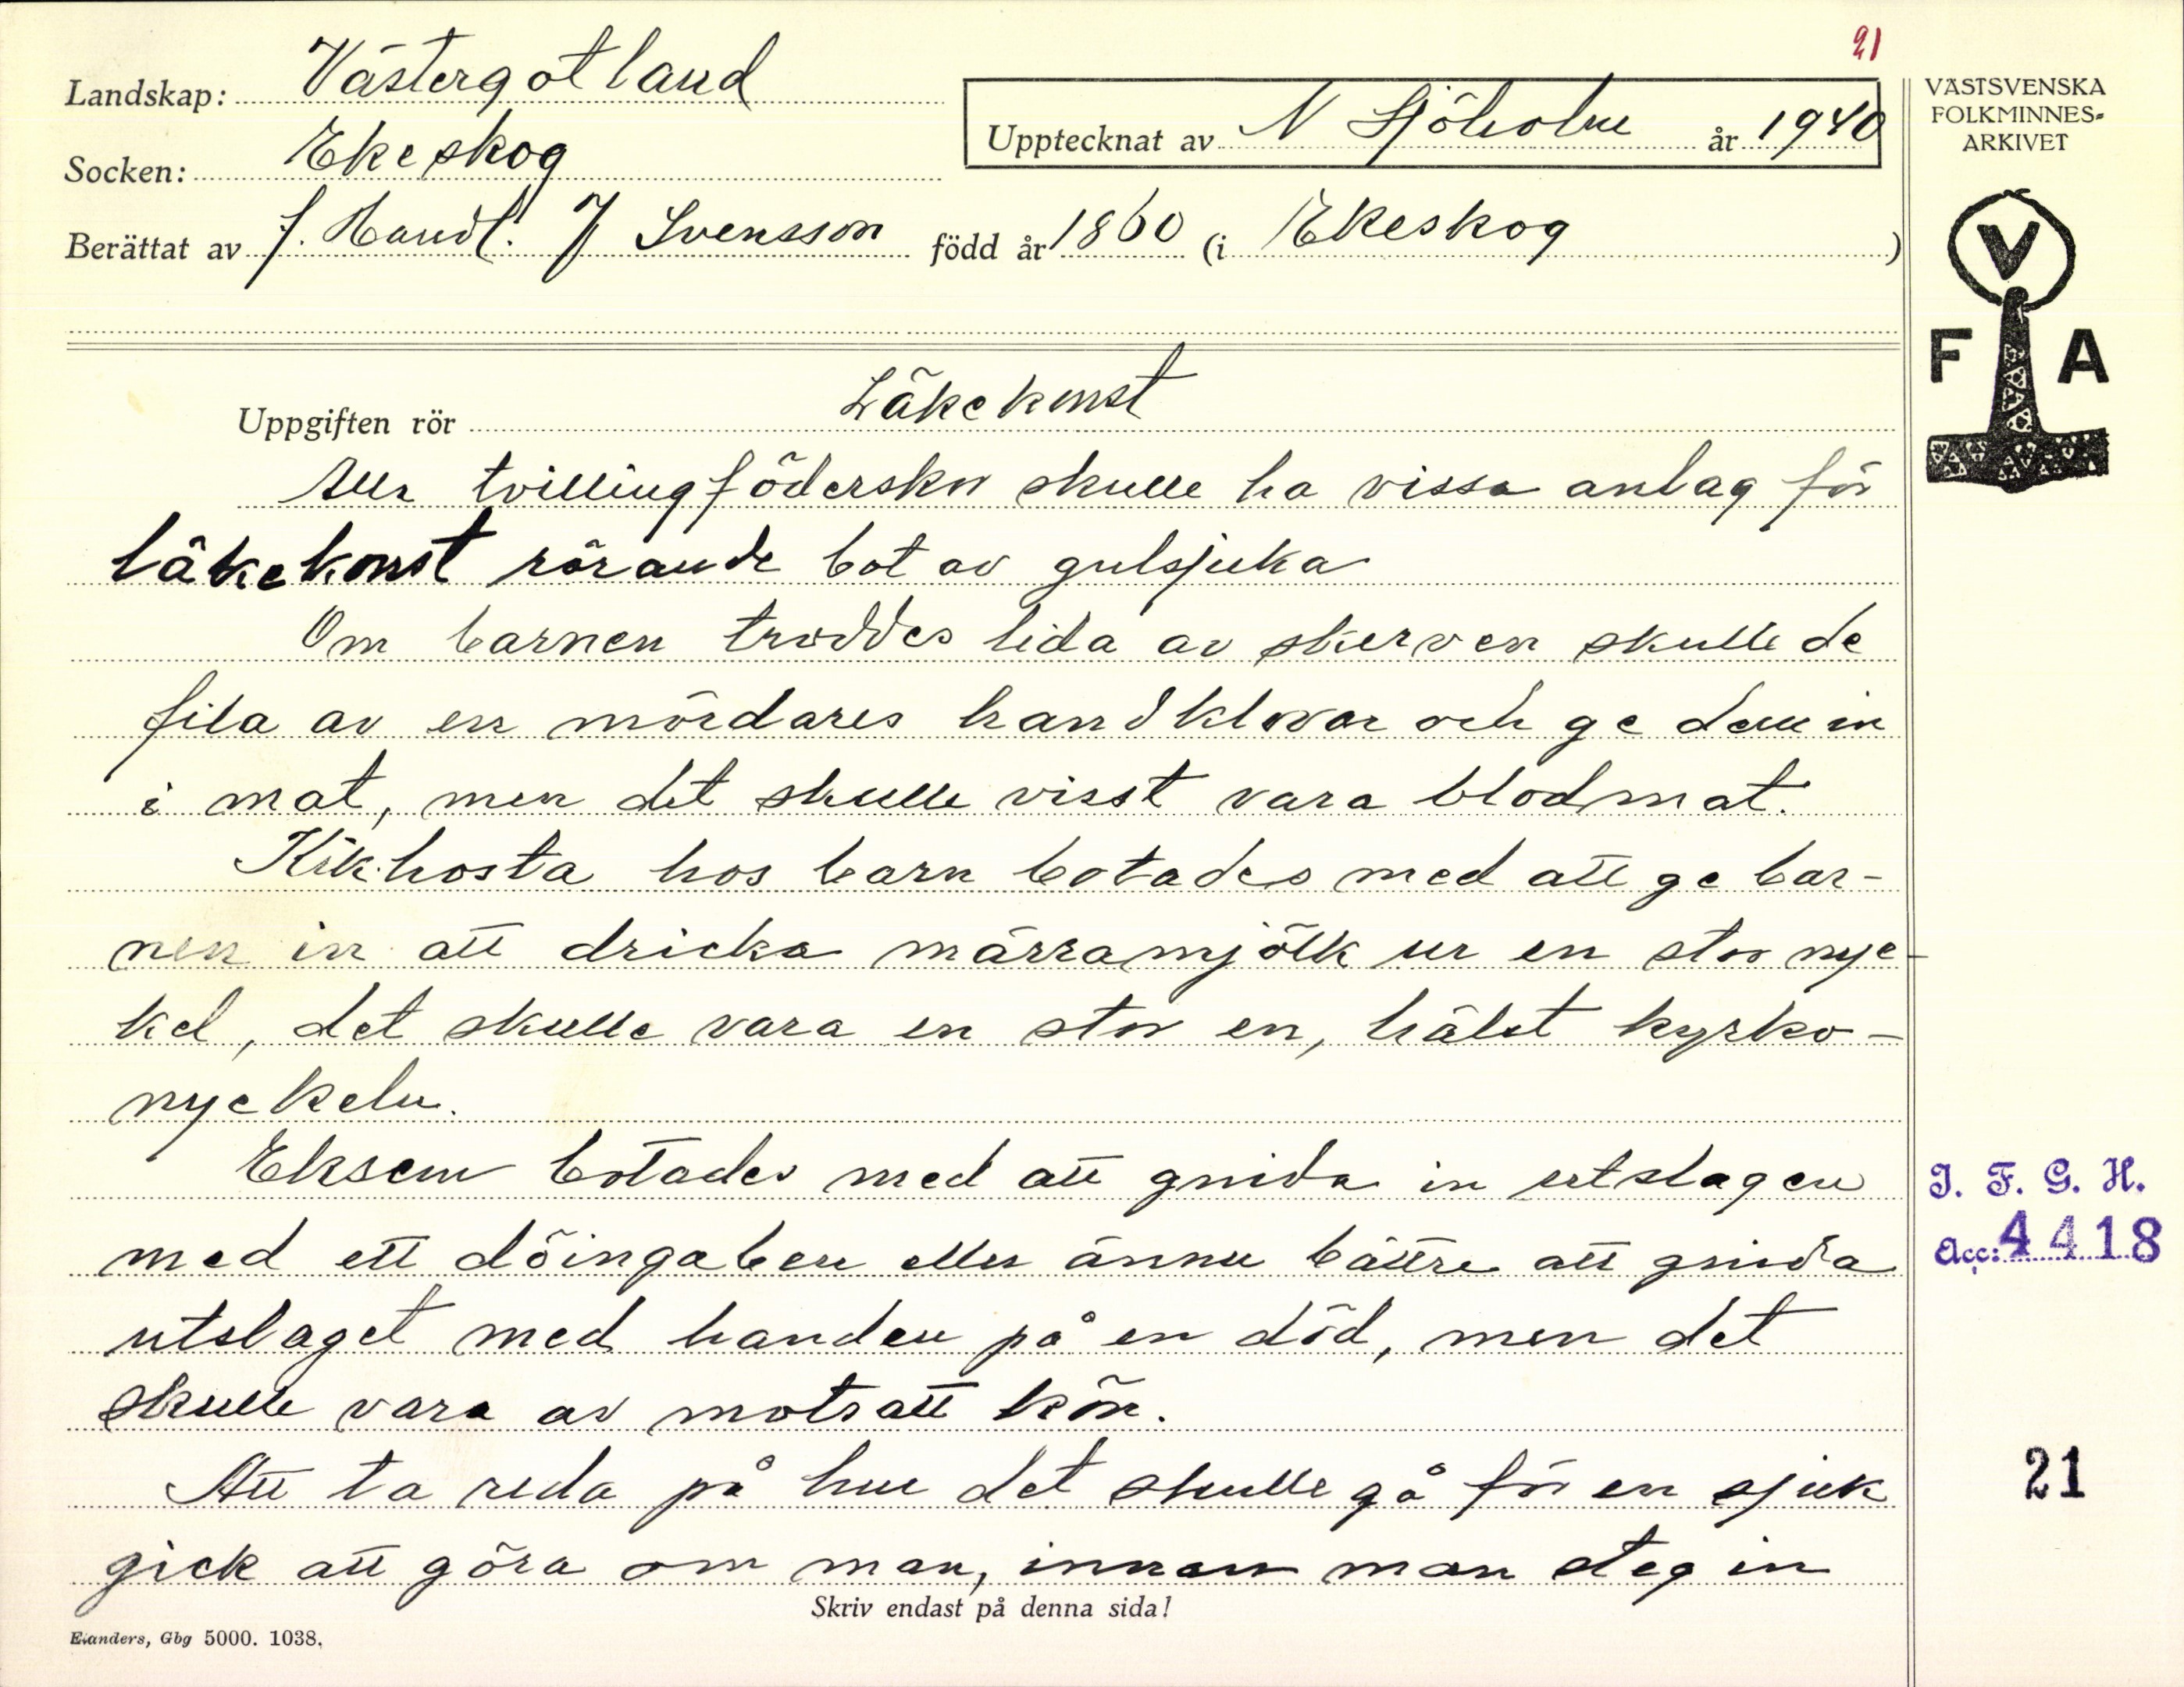 21
Landskap: Västergötland
Upptecknat av N Sjöholm år 1940
Socken: Ekeskog
Berättat av f. Handl. J Svensson född år 1860 (i Ekeskog)
VÄSTSVENSKA
FOLKMINNES-
ARKIVET
V
F A
Uppgiften rör Läkekonst
tvillingföderska skulle ha vissa anlag för
läkekonst rörande bot av gulsjuka
Om barnen troddes lida av skerven skulle de
fila av en mördares handklovar och ge dem in
i mat, men det skulle visst vara blodmat.
Kikhosta hos barn botades med att ge bar-
nen in att dricka märramjölk ur en stor nyc-
kel, det skulle vara en stor en, hälst kyrko-
nyckeln.
Eksem botades med att gnida in utslagen
med ett döingaben eller ännu bättre att gnida
utslaget med handen på en död, men det
skulle vara av motsatt kön.
Att ta reda på hur det skulle gå för en sjuk
gick att göra om man, innan man steg in
Skriv endast på denna sida!
Elanders, Gbg 5000. 1038.
I. F. G. H.
Acc: 4418
21